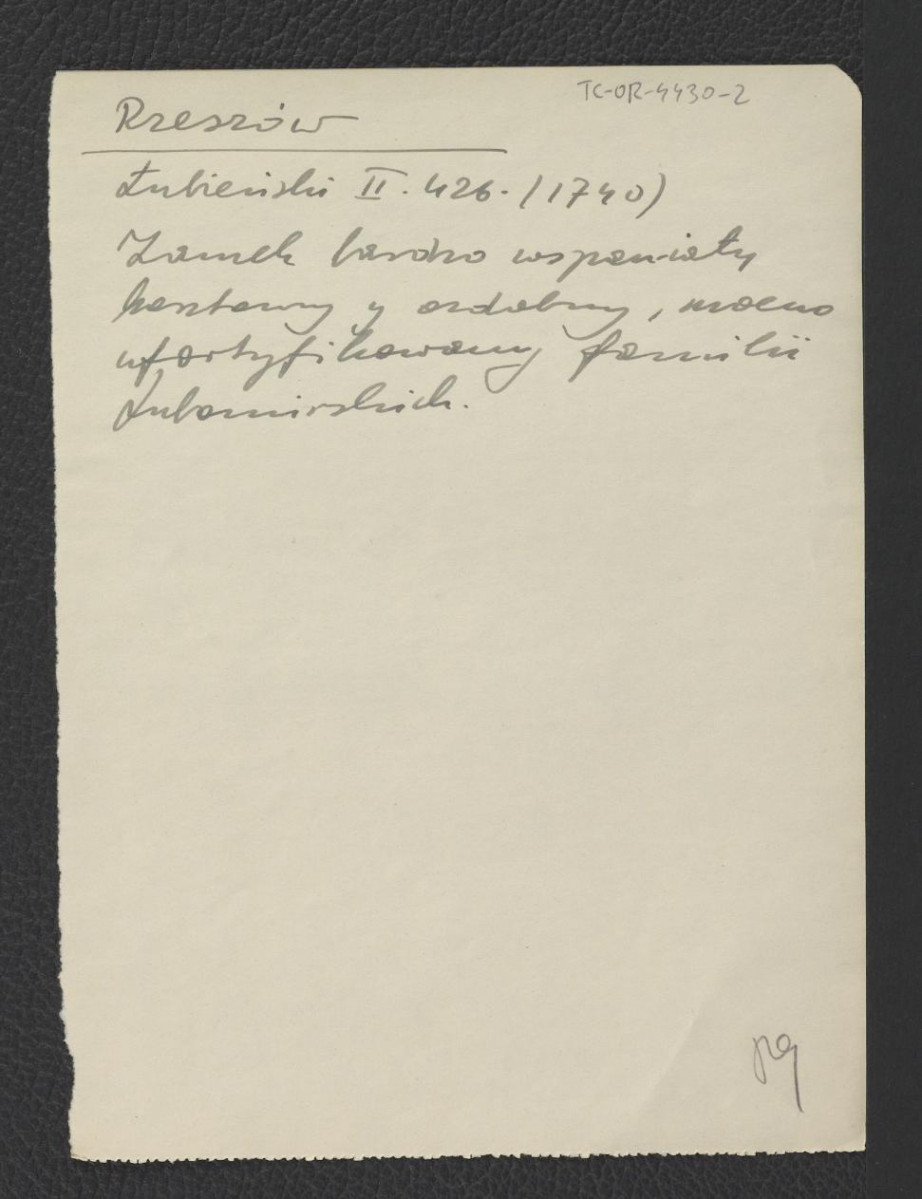 TC-OR-4430-2
Rzeszów
Łubieński II. 426. (1740)
Zamek bardzo wspaniały
kosztowny y ozdobny, mocno
ufortyfikowany familii
Lubomirskich.